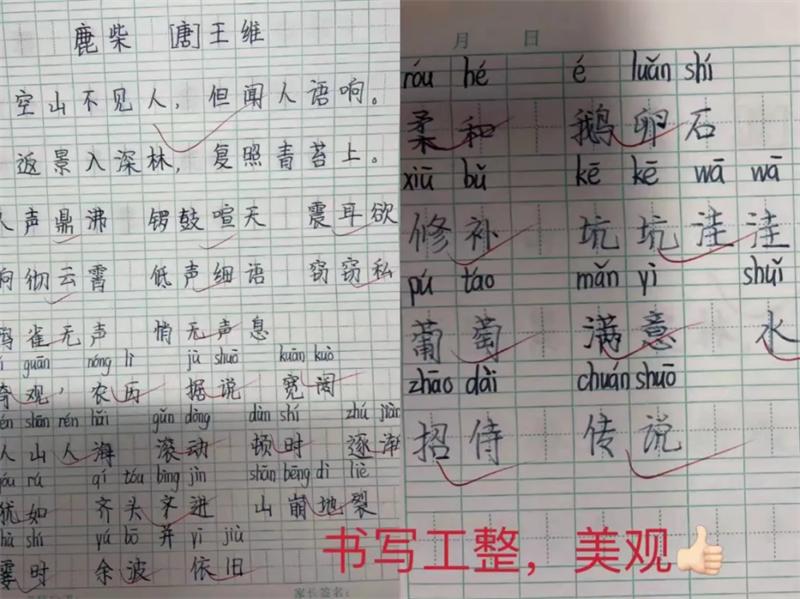 鹿柴 [唐]王维
空山不见人，但闻人语响。
返景入深林，复照青苔上。
人声鼎沸 锣鼓喧天 震耳欲
响彻云霄 低声细语 窃窃私
鸦雀无声 悄无声息
guān nóng lì jù shuō kuān kuò
奇观，农历 据说 宽阔
én shān rén hǎi gǔn dòng dùn shí zhú jiàn
人山人海 滚动 顿时 逐渐
óu rú qí tóu bìng jìn shān bēng dì liè
犹如 齐头 进 山崩地裂
hà shí yú bō 并 yī jiù
霎时 余波 依旧
家长签名：
月 日
róu hé é luǎn shí
柔和 鹅卵石
xiū bǔ kē kē wā wā
修补 坑坑洼洼
pú tao mǎn yì shuǐ
葡萄 满意 水
zhāo dài chuán shuō
招侍 传说
书写工整，美观👍🏻